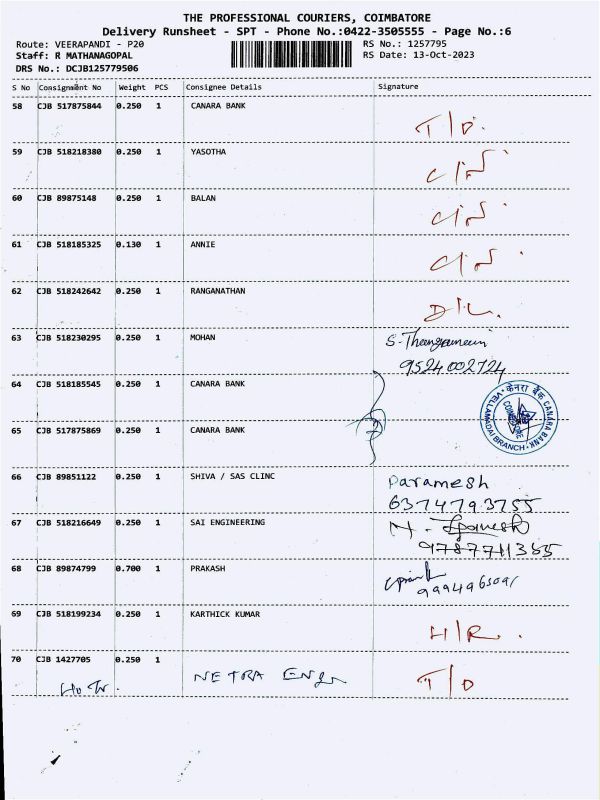 THE PROFESSIONAL COURIERS, COIMBATORE
Delivery Runsheet - SPT - Phone No.:0422-3505555 - Page No.:6
Route: VEERAPANDI - P20 RS No.: 1257795
Staff: R MATHANAGOPAL RS Date: 13-Oct-2023
DRS No.: DCJB125779506
S No Consignment No Weight PCS Consignee Details Signature
58 CJB 517875844 0.250 1 CANARA BANK
T/D.
59 CJB 518218380 0.250 1 YASOTHA
60 CJB 89875148 0.250 1 BALAN
61 CJB 518185325 0.130 1 ANNIE
62 CJB 518242642 0.250 1 RANGANATHAN
D/L.
63 CJB 518230295 0.250 1 MOHAN
9524002724
64 CJB 518185545 0.250 1 CANARA BANK
केनरा बैंक CANARA BANK
VELLAMADAI BRANCH
COIMBATORE
65 CJB 517875869 0.250 1 CANARA BANK
66 CJB 89851122 0.250 1 SHIVA / SAS CLINC
Paramesh
6374793755
67 CJB 518216649 0.250 1 SAI ENGINEERING
9787711355
68 CJB 89874799 0.700 1 PRAKASH
69 CJB 518199234 0.250 1 KARTHICK KUMAR
H/R.
70 CJB 1427705 0.250 1 NETRA
T/D